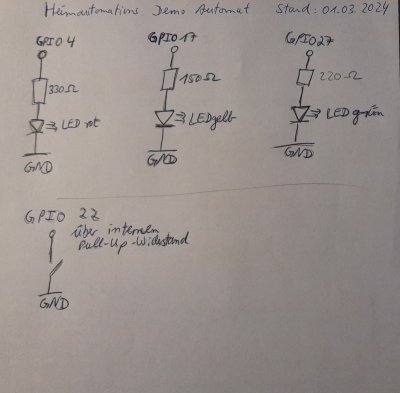 Heimautomations Demo Automat Stand: 01.03.2024
GPIO 4 GPIO 17 GPIO27
330Ω 150Ω 220Ω
LED rot LED gelb LED grün
GND GND GND
GPIO 22
über internen
Pull-Up-Widerstand
GND